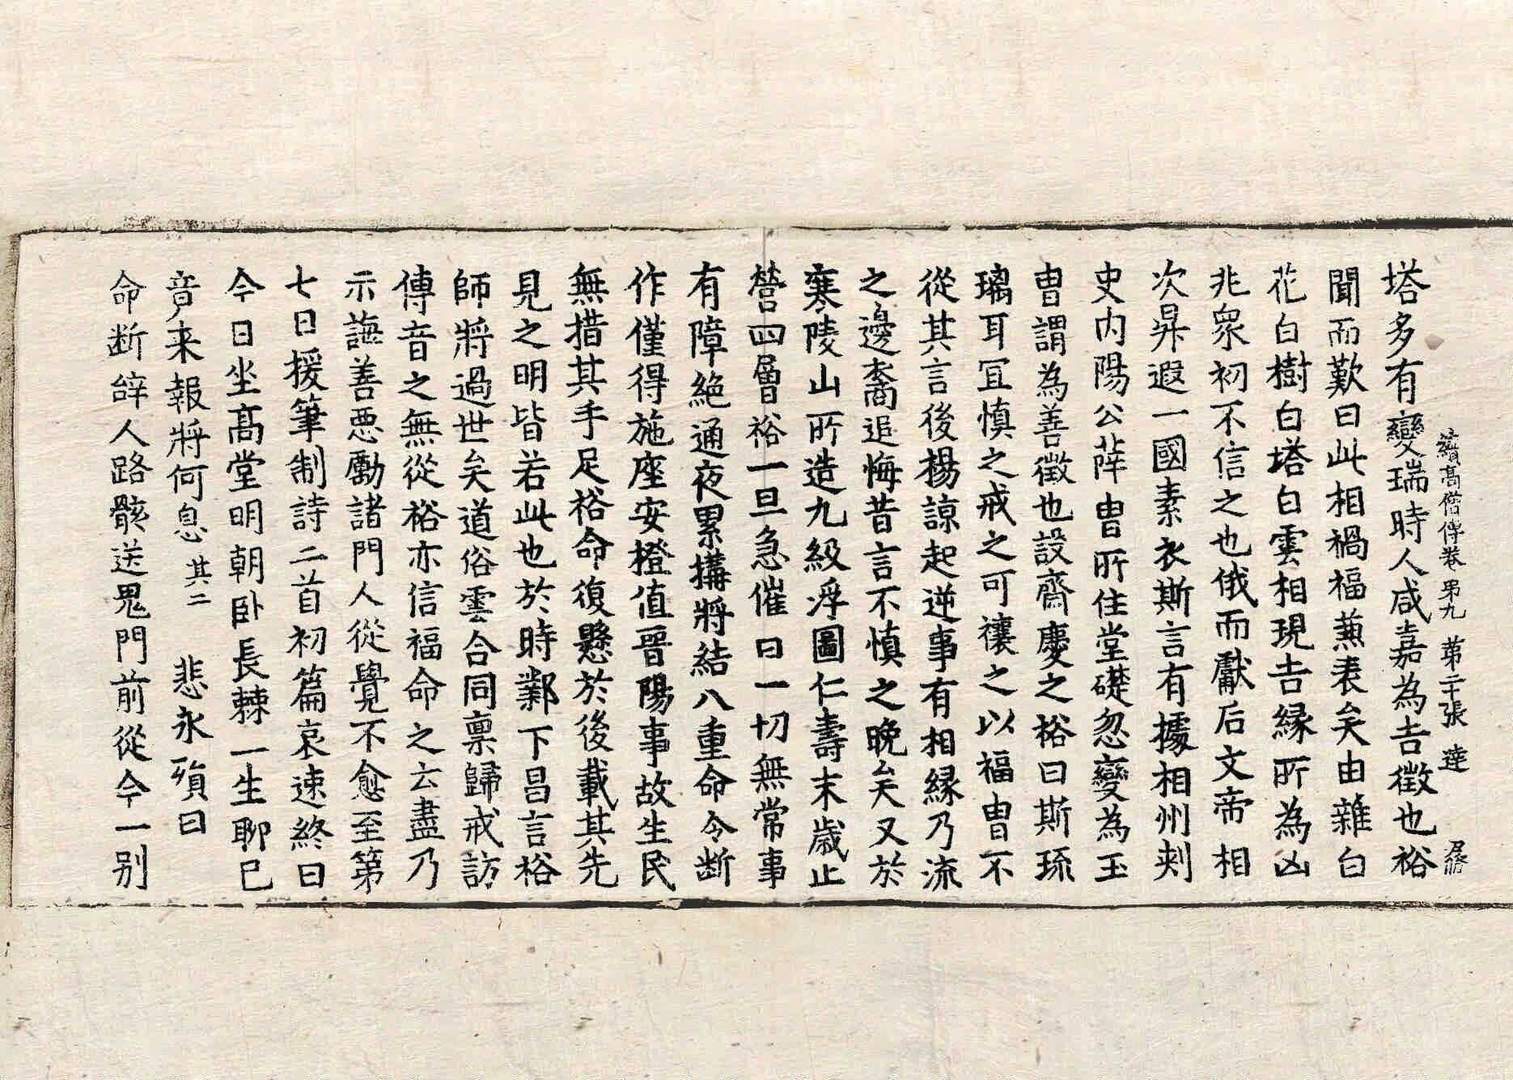 續高僧傳卷第九 第二十張 達
塔多有變瑞時人咸嘉為吉徵也裕
聞而歎曰此相禍福兼表矣由雜白
花白樹白塔白雲相現吉緣所為凶
兆衆初不信之也俄而獻后文帝相
次昇遐一國素衣斯言有據相州刾
史內陽公薛冑所住堂礎忽變為玉
冑謂為善徵也設齋慶之裕曰斯琉
璃耳冝慎之戒之可禳之以福冑不
從其言後楊諒起逆事有相緣乃流
之邊裔追悔昔言不慎之晚矣又於
寒陵山所造九級浮圖仁壽末歲止
營四層裕一旦急催曰一切無常事
有障絕通夜累搆將結八重命令断
作僅得施座安橙值晉陽事故生民
無措其手足裕命復懸於後載其先
見之明皆若此也於時鄴下昌言裕
師將過世矣道俗雲合同禀歸戒訪
傳音之無從裕亦信福命之云盡乃
示誨善惡勵諸門人從覺不愈至第
七日援筆制詩二首初篇哀速終曰
今日坐高堂明朝卧長棘一生聊已
竟来報將何息 其二 悲永殞曰
命断辝人路骸送鬼門前從今一别